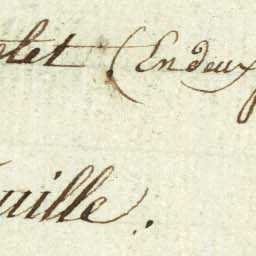 olet (En deux
uille.